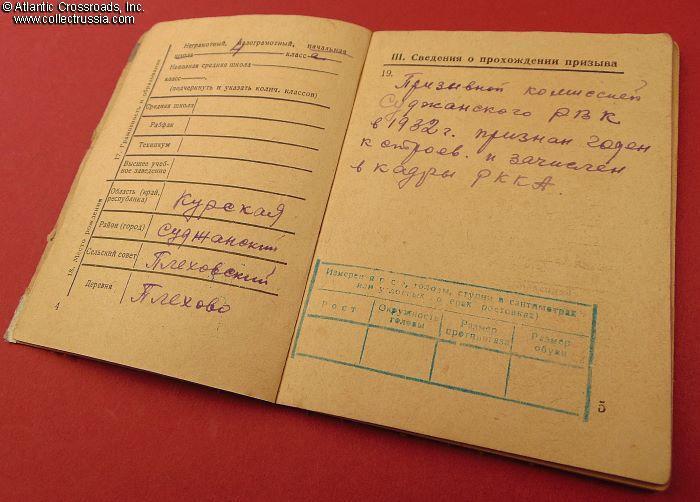 © Atlantic Crossroads, Inc.
www.collectrussia.com
17. Грамотность и образование
Неграмотный, малограмотный, начальная
школа 4 класс а
Неполная средняя школа
класс
(подчеркнуть и указать колич. классов)
Средняя школа
Рабфак
Техникум
Высшее учеб-
ное заведение
18. Место рождения
Область (край,
республика) Курская
Район (город) Суджанский
Сельский совет Плеховский
Деревня Плехово
4
III. Сведения о прохождении призыва
19. Призывной комиссией
Суджанского РВК
в 1932 г. признан годен
к строев. и зачислен
в кадры РККА
Измерения голов, ступни в сантиметрах
ростовка)
Рост
Окружность
головы
Размер
противогаза
Размер
обуви
5